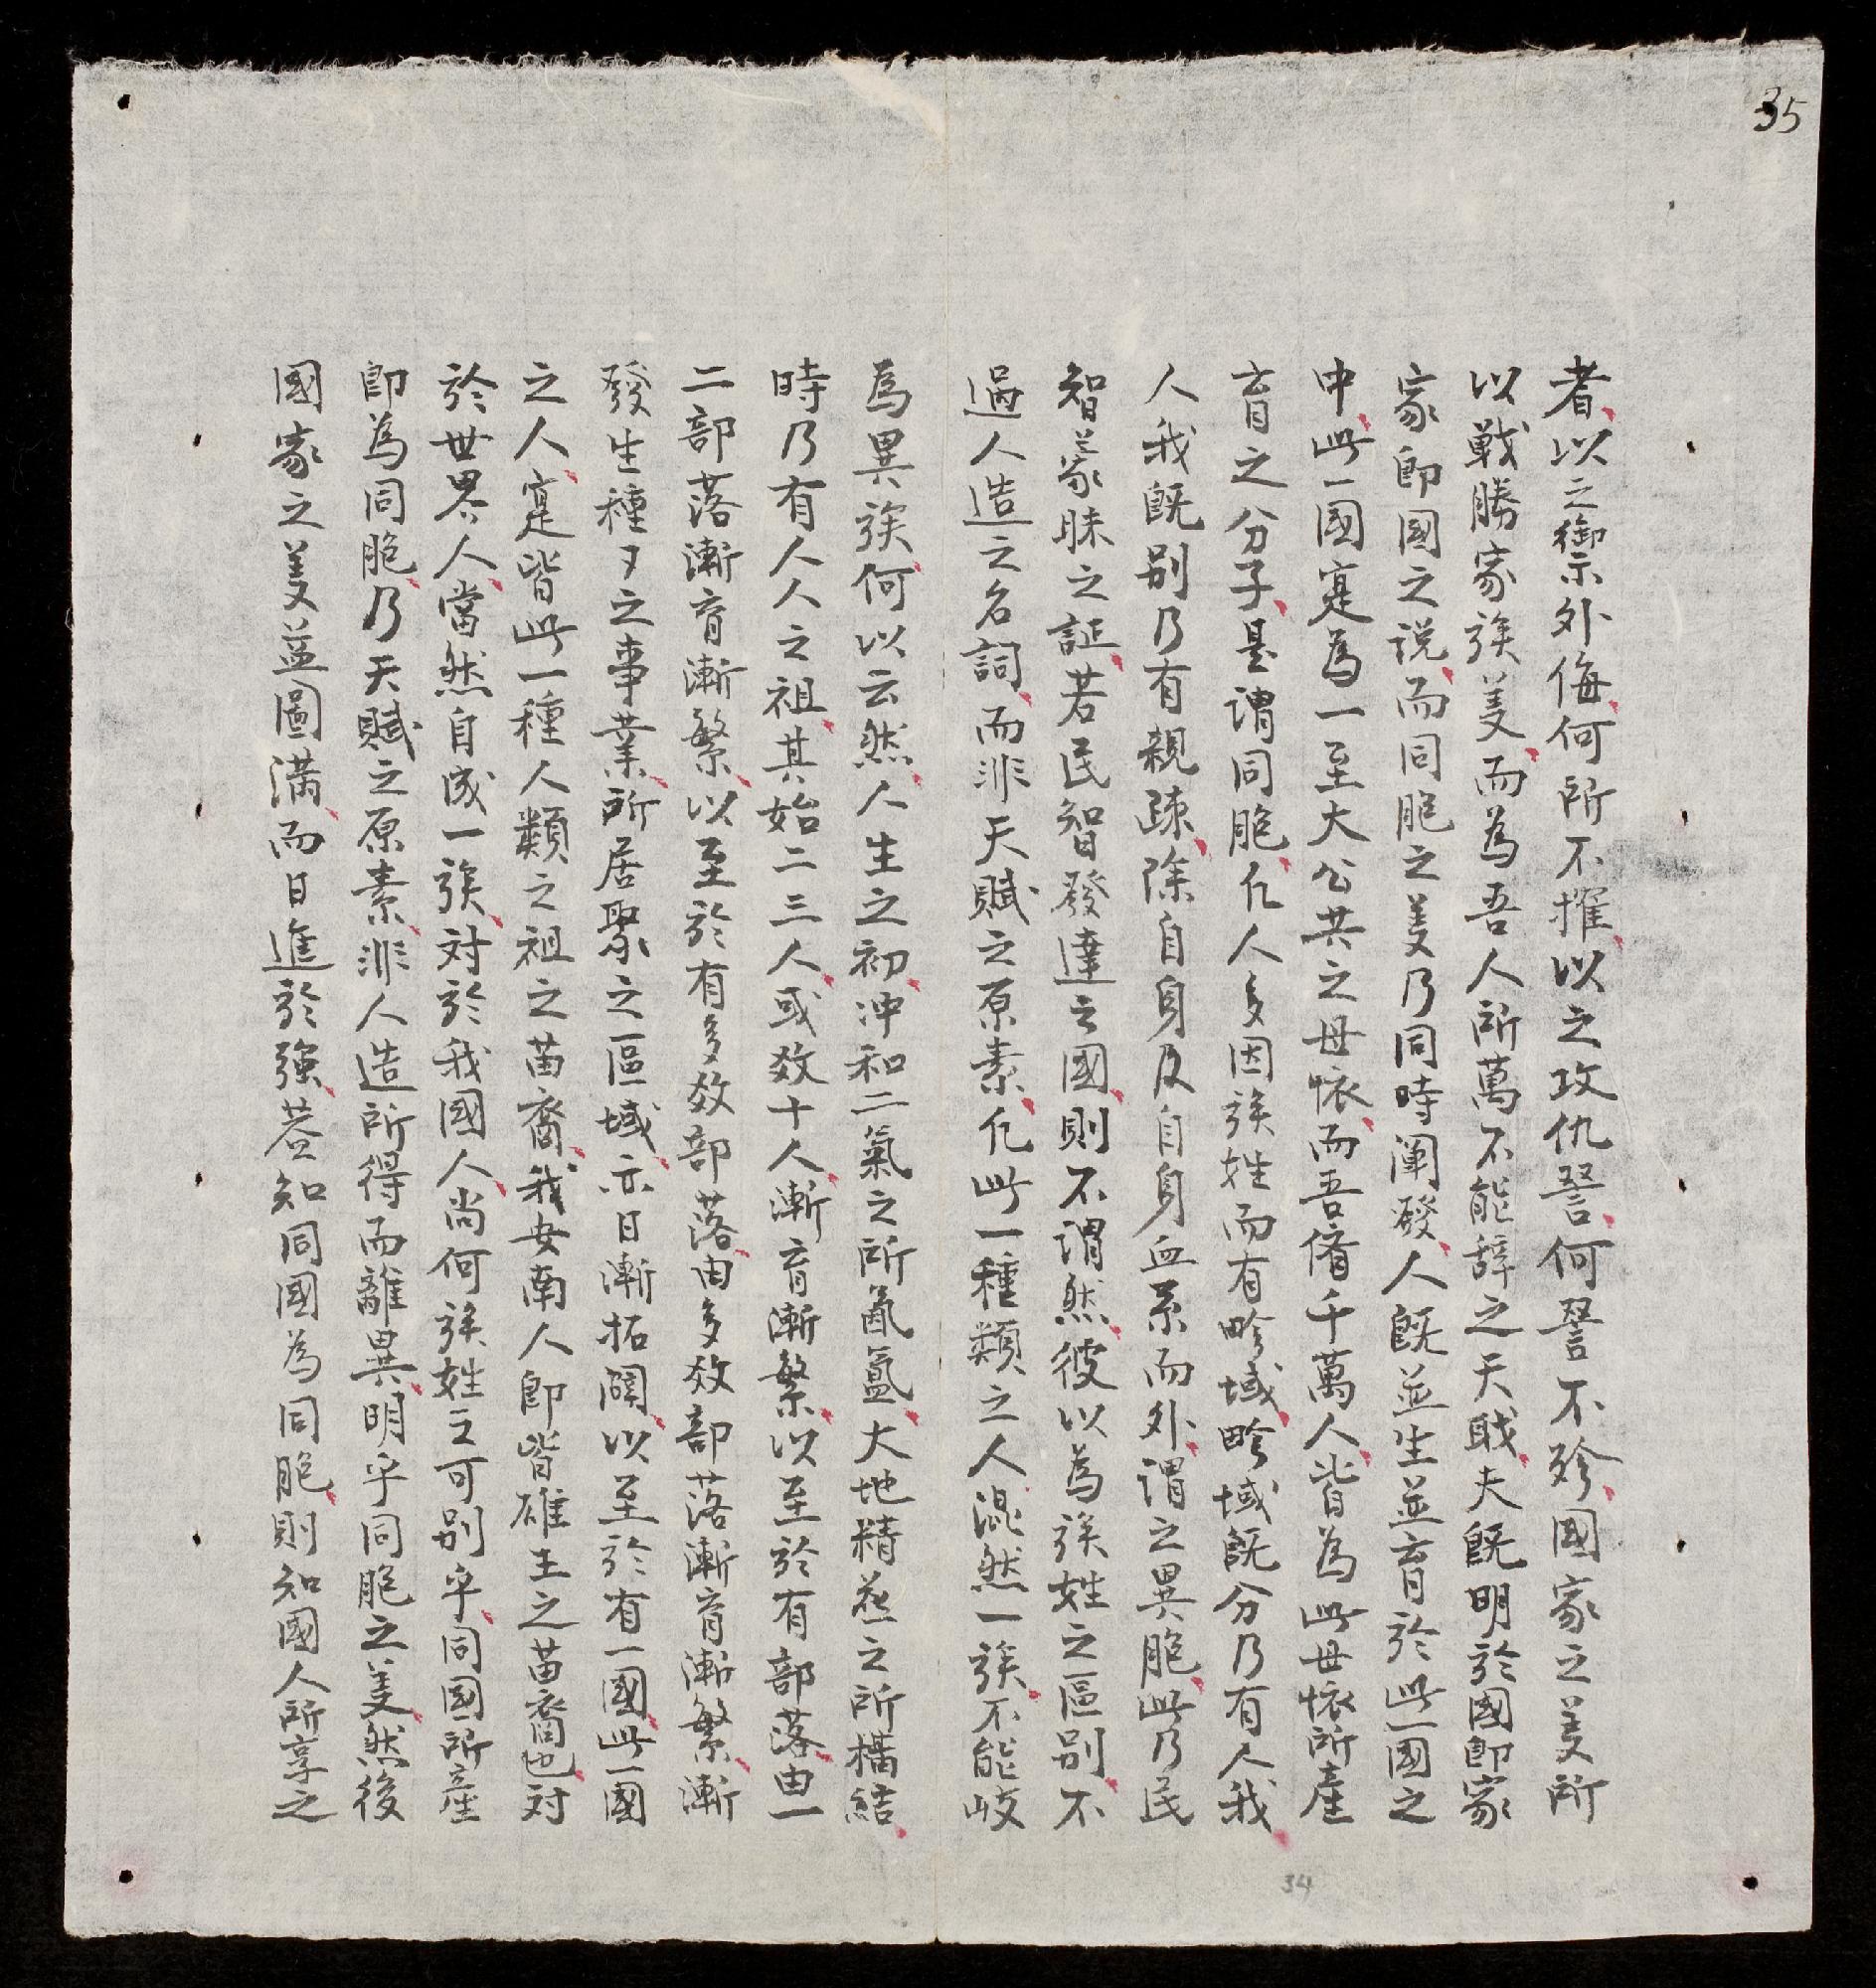 35
者以之禦外侮何所不摧以之攻仇詟何詟不殄國家之美所
以戰勝家族美而為吾人所萬不能辞之天戝夫既明於國即家
家即國之説而同胞之美乃同時闡發人既並生並育於此一國之
中此一國寔為一至大公共之母懐而吾儕千萬人皆為此母懐所產
育之分子是謂同胞仡人多因族姓而有畛域畛域既分乃有人我
人我既别乃有親疎除自身及自身血系而外谓之異胞此乃民
智蒙昧之証若民智發達之國則不谓然彼以為族姓之區别不
過人造之名詞而非天賦之原素仡此一種類之人混然一族不能歧
為異族何以云然人生之初冲和二氣之所氤氳大地精英之所構結
時乃有人人之祖其始二三人或效十人漸育漸繁以至於有部落由一
二部落漸育漸繁以至於有多效部落由多效部落漸育漸繁漸
發生種々之事業所居聚之區域亦日漸拓闊以至於有一國此一國
之人寔皆此一種人類之祖之苗裔我安南人即皆雄王之苗裔也対
於世界人當然自成一族対於我國人尚何族姓之可别乎同國所產
即為同胞乃天賦之原素非人造所得而離異明乎同胞之美然後
國家之美益圓满而日進於強蓋知同國為同胞則知國人所享之
34